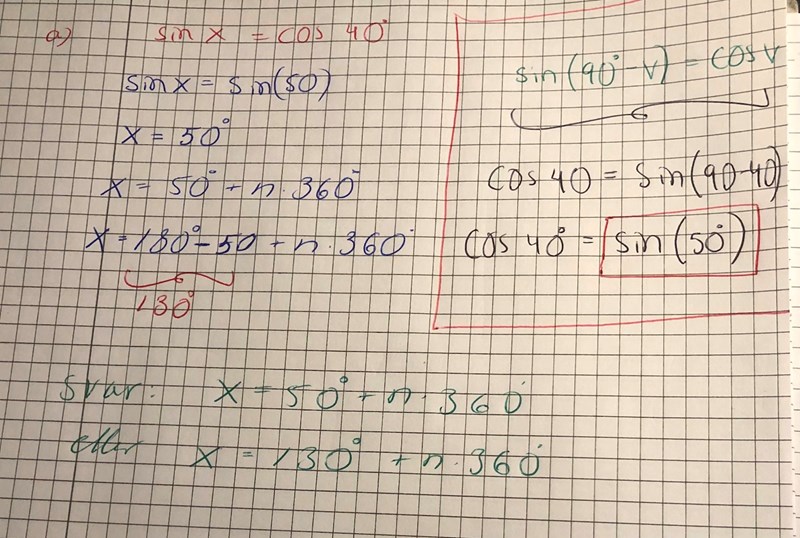 a) sin x = cos 40°
sin x = sin(50)
x = 50°
x = 50° + n·360°
x = 180° - 50 + n·360°
130°
sin(90° - v) = cos v
cos 40 = sin(90-40)
cos 40° = sin(50°)
Svar: x = 50° + n·360°
eller x = 130° + n·360°